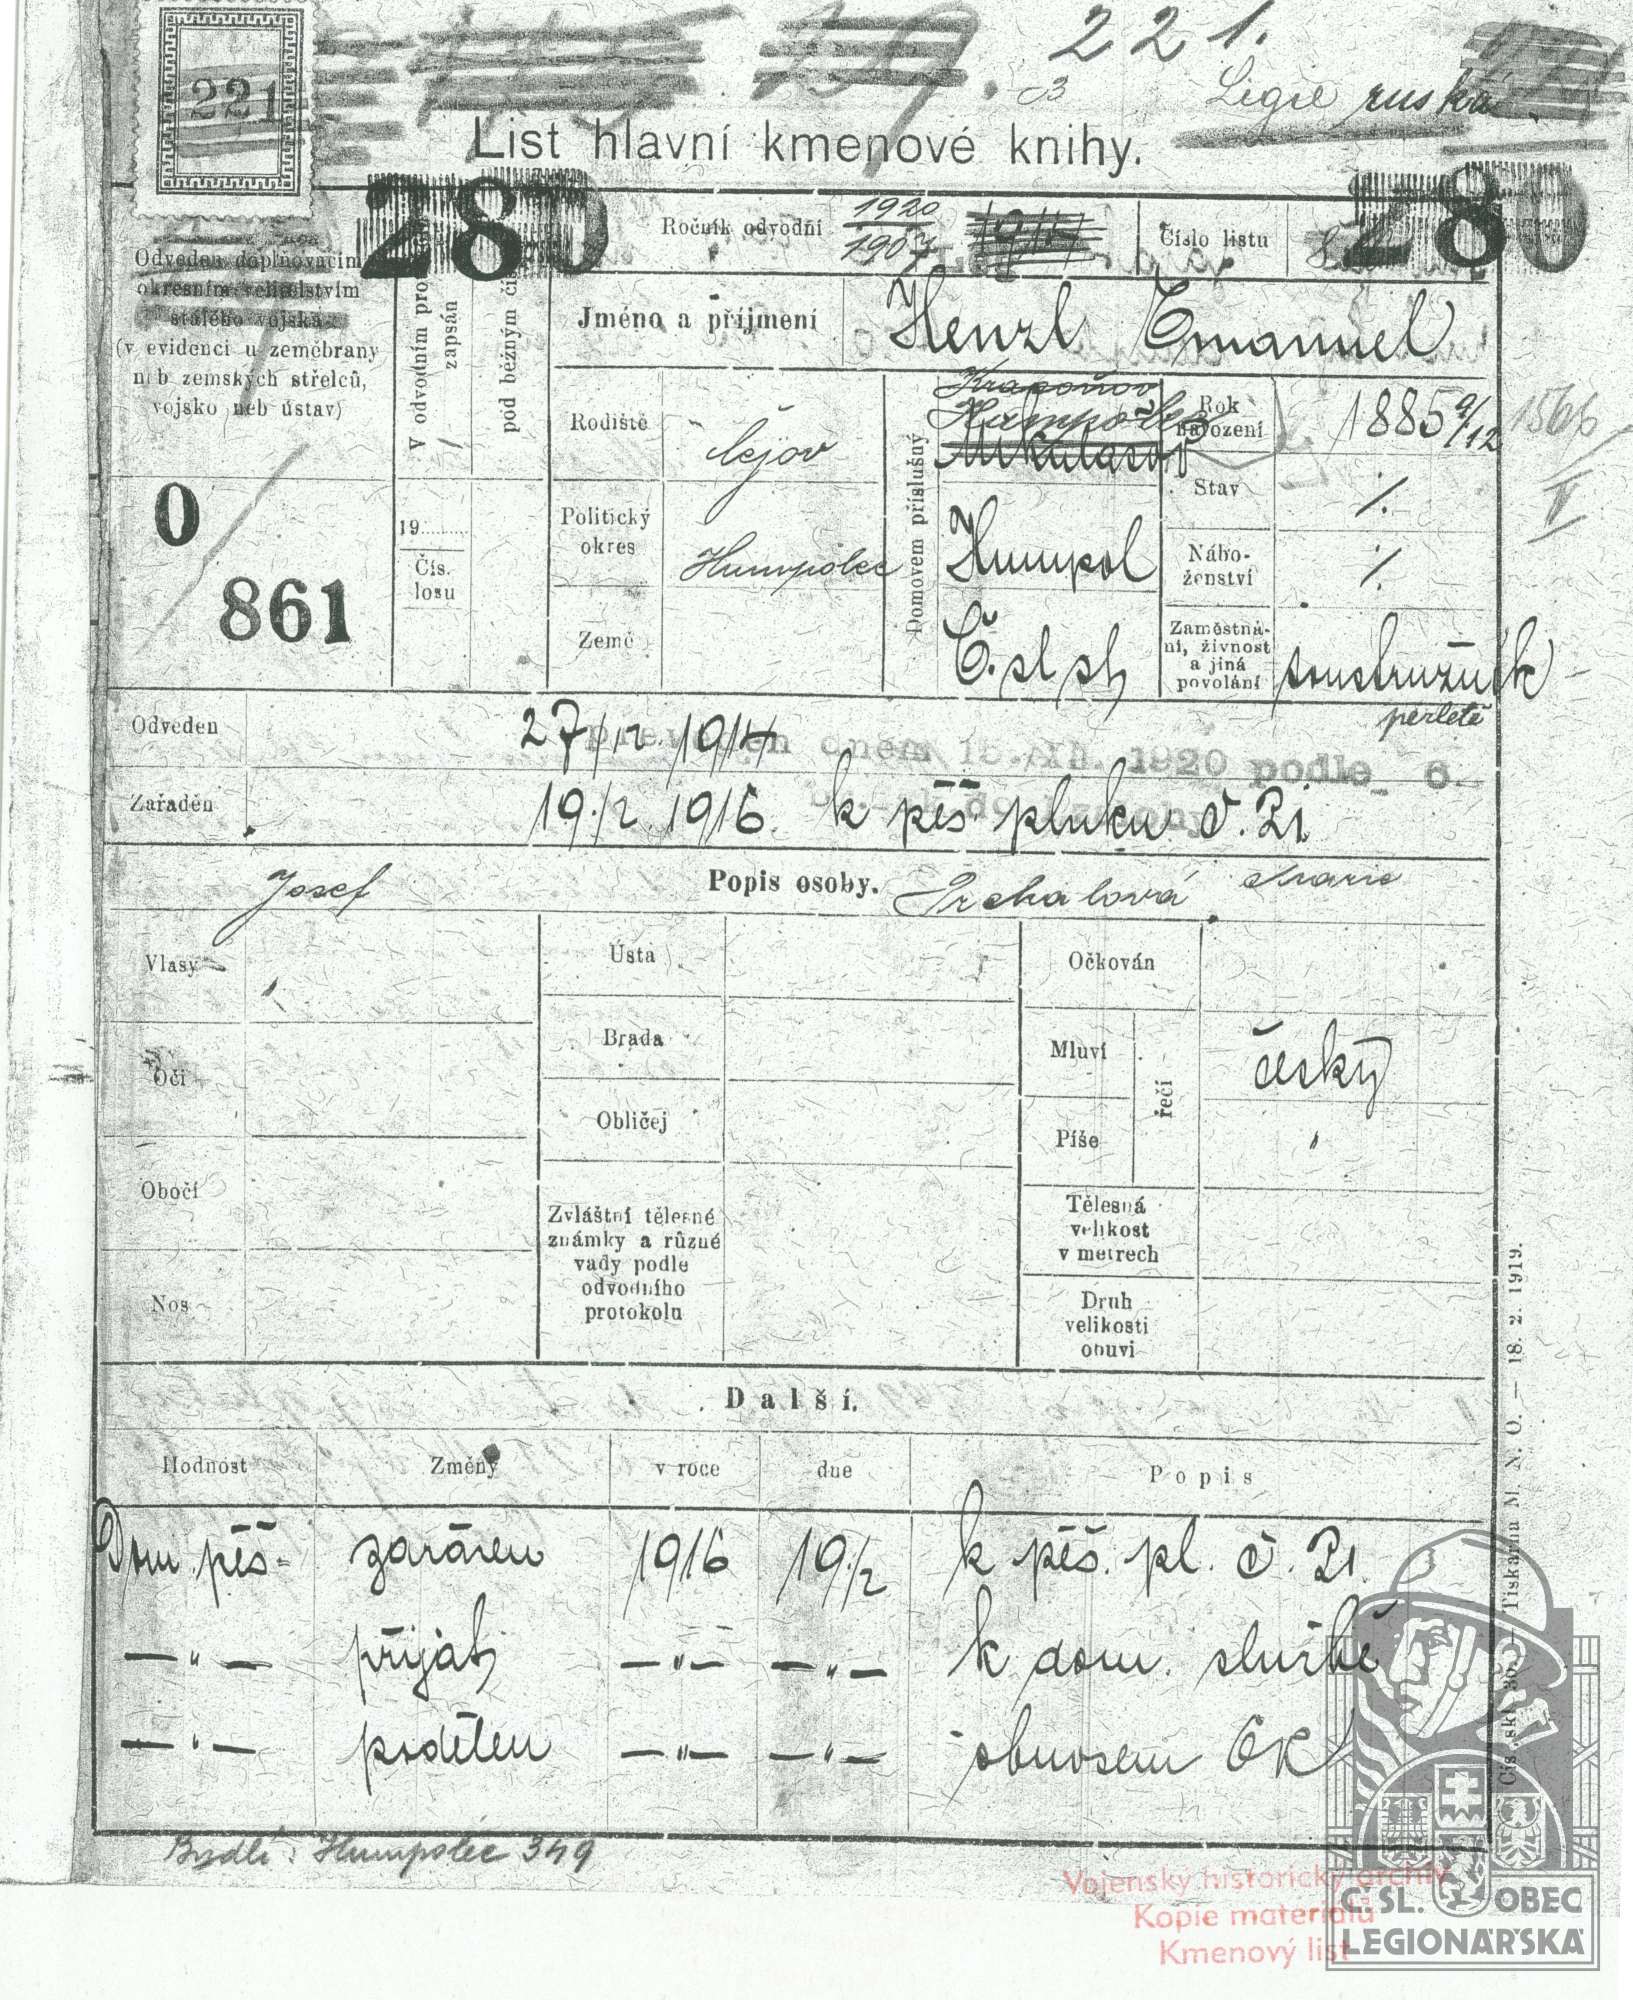 221.
221
Legie ruská
List hlavní kmenové knihy.
280
280
Ročník odvodní
1920
1907
1914
Číslo listu
Odveden doplňovacím
okresním velitelstvím
stálého vojska
(v evidenci u zeměbrany
neb zemských střelců,
vojsko neb ústav)
0
861
V odvodním
zapsán
pod běžným
19
Čís.
losu
Jméno a příjmení
Henzl Emanuel
Rodiště
Čejov
Politický
okres
Humpolec
Země
Domovem příslušný
Humpolec
Humpol
Č. sl. st.
Rok
narození
1885 9/12
1566
II
Stav
/.
Nábo-
ženství
/.
Zaměstná-
ní, živnost
a jiná
povolání
soustružník
perletě
Odveden
27/12 1914
převeden dnem 15. 1920 podle
Zařaděn
19./2. 1916. k pěš. pluku č. 21
Josef
Popis osoby.
Prchalová Marie
Vlasy
Ústa
Očkován
Oči
Brada
Mluví
řečí
český
Obličej
Píše
"
Obočí
Zvláštní tělesné
známky a různé
vady podle
odvodního
protokolu
Tělesná
velikost
v metrech
Nos
Druh
velikosti
obuvi
Další.
Hodnost
Změny
v roce
dne
Popis
Dom. pěš. zařáděn 1916 19./2 k pěš. pl. č. 21.
— " — přijat — " — — " — k dom. službě
— " — podělen — " — — " — obnosem 6K
Bydlí: Humpolec 349
Čís. skl. 30. — Tiskárna M. N. O. — 18. 2. 1919.
Vojenský historický archiv
Kopie materiálů
Kmenový list
Č. SL. OBEC
LEGIONÁŘSKÁ